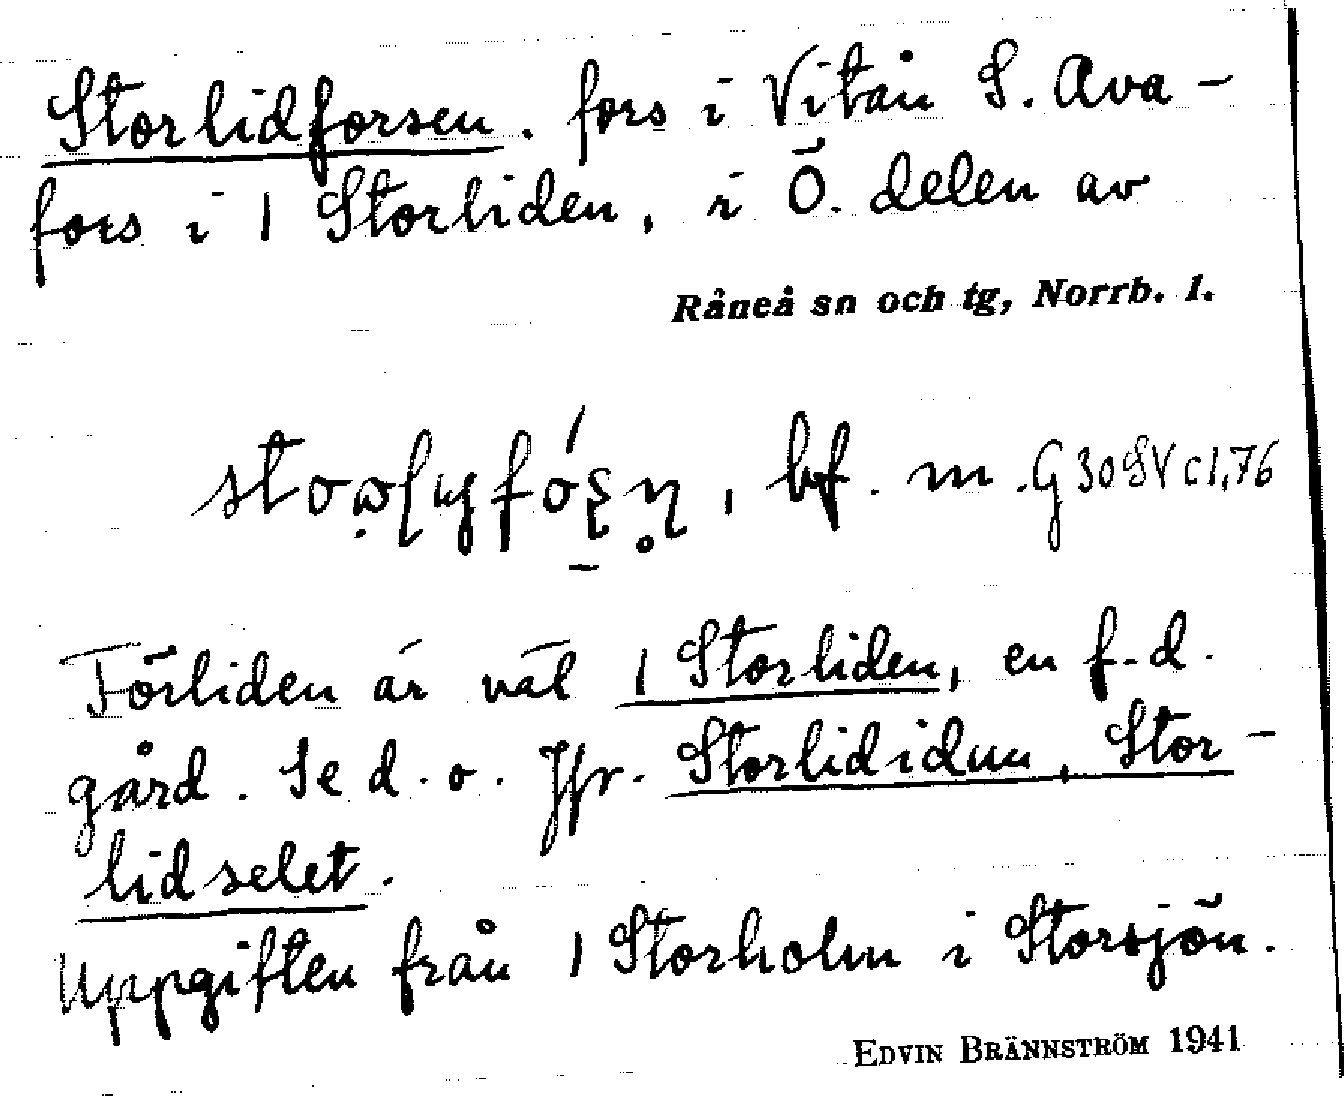 Storlidforsen. fors i Vitån S. Ava-
fors i 1 Storliden, i Ö. delen av
Råneå sn och tg, Norrb. l.
, bf. m. G 30 SV c 1,76
Förliden är väl 1 Storliden, en f.d.
gård. Se d.o. Jfr. Storlididun, Stor-
lidselet.
Uppgiften från 1 Storholm i Storsjön.
EDVIN BRÄNNSTRÖM 1941